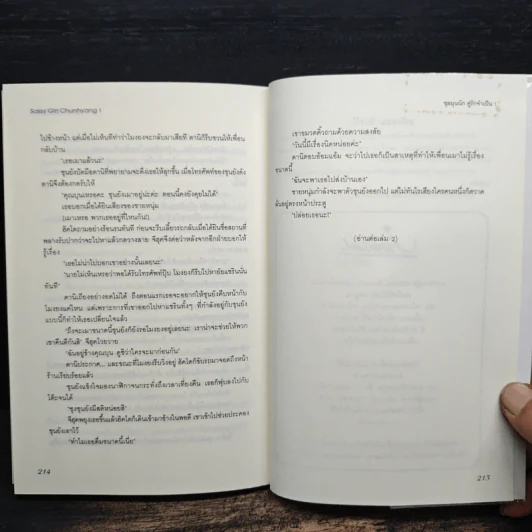 Sassy Girl Chunhyang 1
ไปข้างหน้า แต่เมื่อไม่เห็นทีท่าว่าโมงยงจะกลับมาเสียที ดานีก็รีบชวนให้เพื่อน
กลับบ้าน
"เธอเมาแล้วนะ"
ชุนยังปัดมือดานีที่พยายามจะดึงเธอให้ลุกขึ้น เมื่อโทรศัพท์ของชุนยังดัง
ดานีจึงต้องกดรับให้
"คุณบุนเหรอคะ ชุนยังเมาอยู่น่ะค่ะ ตอนนี้คงยังคุยไม่ได้"
เธอบอกเมื่อได้ยินเสียงของชายหนุ่ม
(เมาเหรอ พวกเธออยู่ที่ไหนกัน!)
ฮัคโดถามอย่างร้อนรนทันที ก่อนจะรีบเลี้ยวรถกลับเมื่อได้ยินชื่อสถานที่
พลางรับปากว่าจะไปหาแล้วกดวางสาย จีฮุคจึงต่อว่าหลังจากอีกฝ่ายบอกให้
รู้เรื่อง
"เธอไม่น่าไปบอกเขาอย่างนั้นเลยนะ"
"นายไม่เห็นเหรอว่าพอได้รับโทรศัพท์ปุ๊บ โมงยงก็รีบไปหายัยแชรินนั่น
ทันที"
ดานีเถียงอย่างอดไม่ได้ ถึงตอนแรกเธอจะอยากให้ชุนยังคืนหน้ากับ
โมงยงแค่ไหน แต่เพราะการที่เขาออกไปหาแชรินทั้งๆ ที่กำลังอยู่กับชุนยัง
แบบนี้ก็ทำให้เธอเปลี่ยนใจแล้ว
"ถึงจะเมาขนาดนี้ชุนยังก็ยังรอโมงยงอยู่เลยนะ เราน่าจะช่วยให้พวก
เขาคืนดีกันสิ" จีฮุคโวยวาย
"ฉันอยู่ข้างคุณบุน ดูซิว่าใครจะมาก่อนกัน"
ดานีประกาศ... และขณะที่โมงยงรีบวิ่งอยู่ ฮัคโดก็ขับรถมาจอดถึงหน้า
ร้านเรียบร้อยแล้ว
ชุนยังแข็งใจมองนาฬิกาจนกระทั่งถึงเวลาเที่ยงคืน เธอก็ฟุบลงไปกับ
โต๊ะจนได้
"ซุงชุนยังมีสติหน่อยสิ"
จีฮุคพยุงเธอขึ้นแล้วฮัคโดก็เดินเข้ามาข้างในพอดี เขาเข้าไปช่วยประคอง
ชุนยังเอาไว้
"ทำไมเธอดื่มขนาดนี้เนี่ย"
214
ชุลมุนนัก คู่รักจำเป็น 1
เขาขมวดคิ้วถามด้วยความสงสัย
"วันนี้มีเรื่องนิดหน่อยค่ะ"
ดานีตอบอ้อมแอ้ม จะว่าไปเธอก็เป็นสาเหตุที่ทำให้เพื่อนเมาไม่รู้เรื่อง
ขนาดนี้
"ฉันจะพาเธอไปส่งบ้านเอง"
ชายหนุ่มกำลังจะพาตัวชุนยังออกไป แต่ไม่ทันไรเสียงใครคนหนึ่งก็ตวาด
ลั่นอยู่ตรงหน้าประตู
"ปล่อยเธอนะ!"
(อ่านต่อเล่ม 2)
215